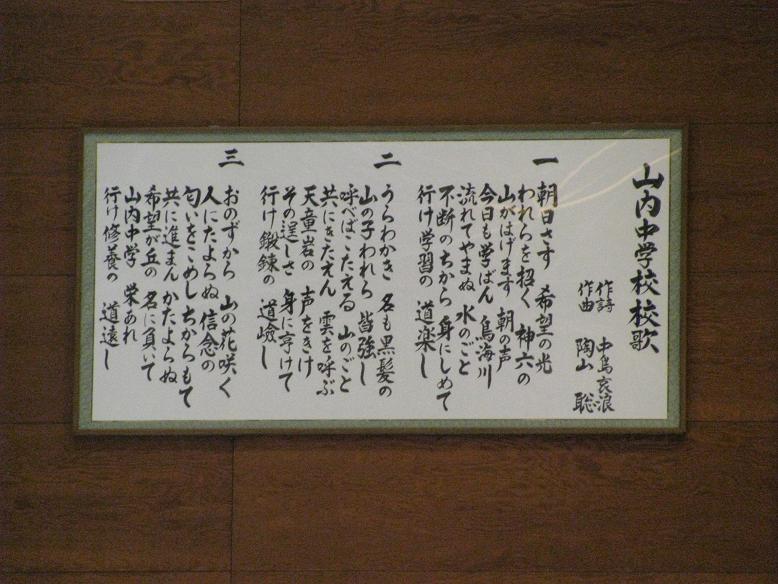 山内中学校 校歌
作詩 中島哀浪
作曲 陶山 聡
一
朝日さす 希望の光
われらを招く 神六の
山がはげます 朝の声
今日も学ばん 鳥海川
流れてやまぬ 水のごと
不断のちから 身にしめて
行け学習の 道楽し
二
うらわかき 名も黒髪の
山の子われら 皆強し
呼べばこたえる 山のごと
共にきたえん 雲を呼ぶ
天童岩の 声をきけ
その逞しさ 身に享けて
行け鍛錬の 道嶮し
三
おのずから 山の花咲く
人にたよらぬ 信念の
匂いをこめし ちからもて
共に進まん かたよらぬ
希望が丘の 名に負いて
山内中学 栄あれ
行け修養の 道遠し